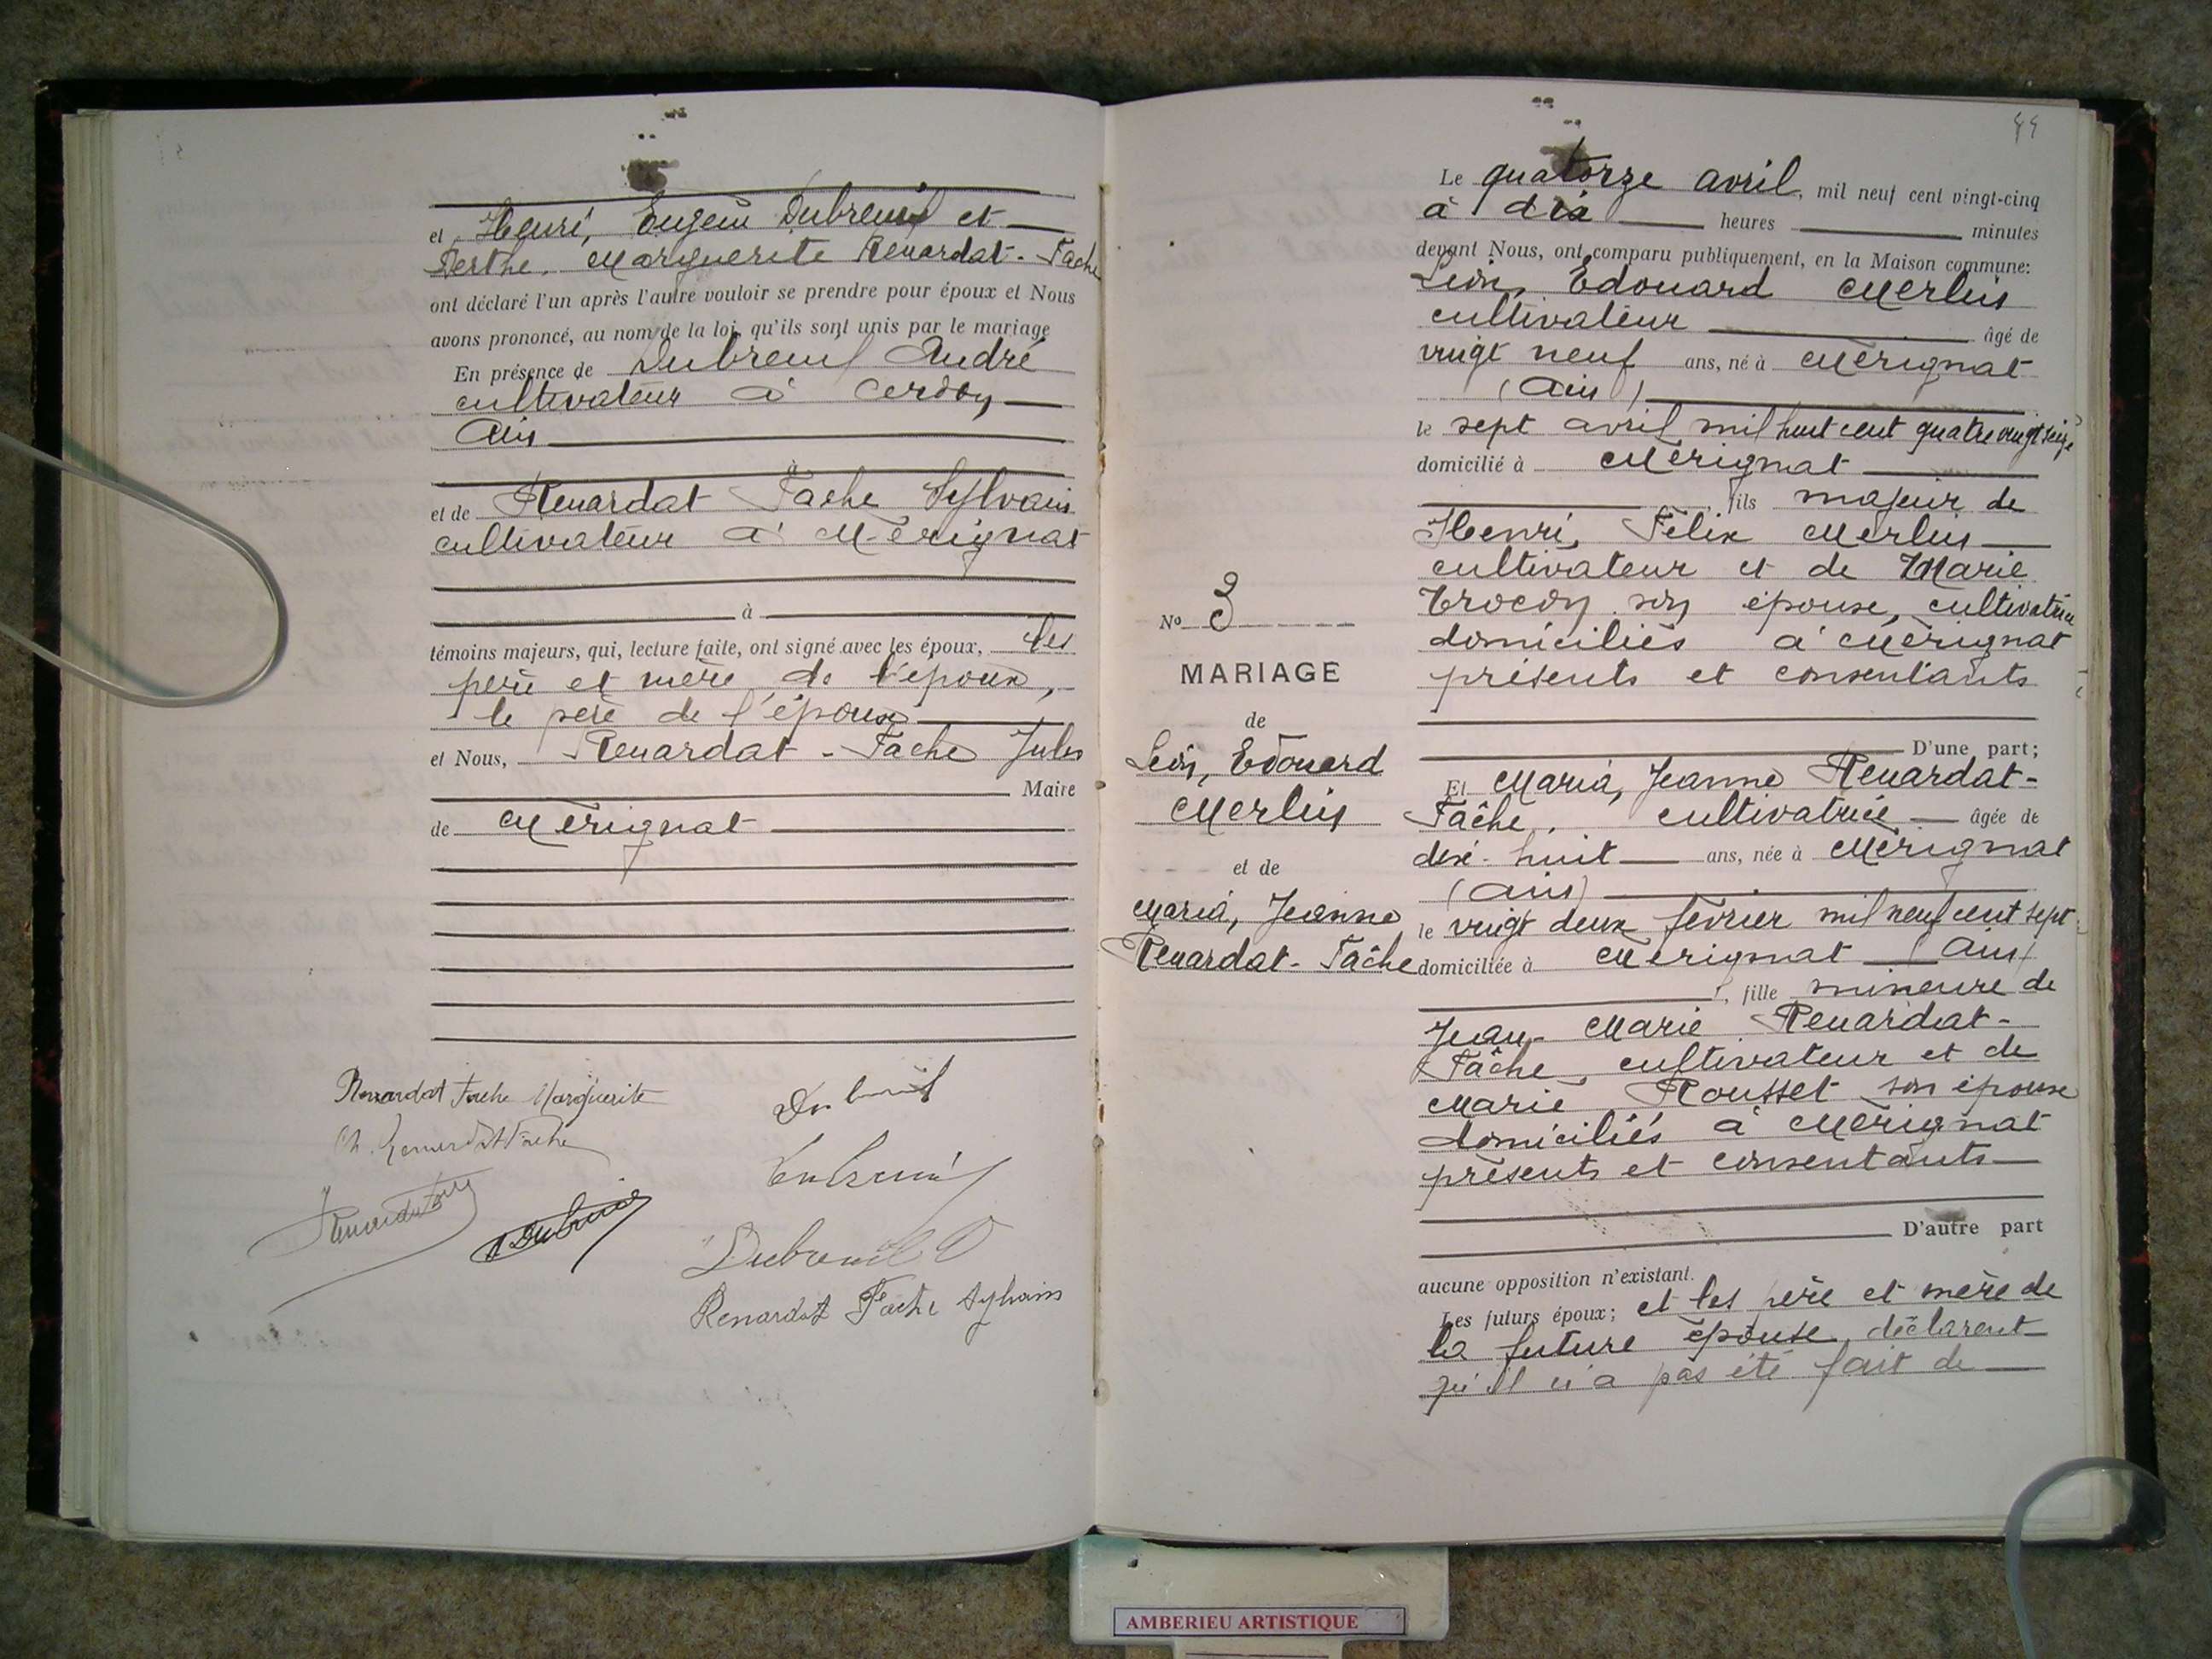 et Henri, Eugène Dubreuil et
Berthe, Marguerite Renardat-Fache
ont déclaré l'un après l'autre vouloir se prendre pour époux et Nous
avons prononcé, au nom de la loi, qu'ils sont unis par le mariage
En présence de Dubreuil André
cultivateur à Cerdon
Ain
à
et de Renardat Fache Sylvain
cultivateur à Mérignat
à
témoins majeurs, qui, lecture faite, ont signé avec les époux, les
père et mère de l'époux,
le père de l'épouse
et Nous, Renardat-Fache Jules
Maire
de Mérignat
Renardat Fache Marguerite
Dubreuil
Ch. Renardat Fache
Dubreuil
Dubreuil
Renardat Fache Sylvain
Le quatorze avril, mil neuf cent vingt-cinq
à dix heures minutes
devant Nous, ont comparu publiquement, en la Maison commune:
Léon, Edouard Merlin
cultivateur âgé de
vingt neuf ans, né à Mérignat
(Ain)
le sept avril mil huit cent quatre vingt seize
domicilié à Mérignat
fils majeur de
Henri, Félix Merlin
cultivateur et de Marie
Trocon son épouse, cultivatrice
domiciliés à Mérignat
présents et consentants
D'une part;
Et Maria, Jeanne Renardat-
Fâche, cultivatrice âgée de
dix-huit ans, née à Mérignat
(Ain)
le vingt deux février mil neuf cent sept
domiciliée à Mérignat (Ain)
, fille mineure de
Jean-Marie Renardat-
Fâche, cultivateur et de
Marie Rousset son épouse
domiciliés à Mérignat
présents et consentants
D'autre part
aucune opposition n'existant.
Les futurs époux; et les père et mère de
la future épouse, déclarent
qu'il n'a pas été fait de
No 3
MARIAGE
de
Léon, Edouard
Merlin
et de
Maria, Jeanne
Renardat-Fâche
AMBERIEU ARTISTIQUE